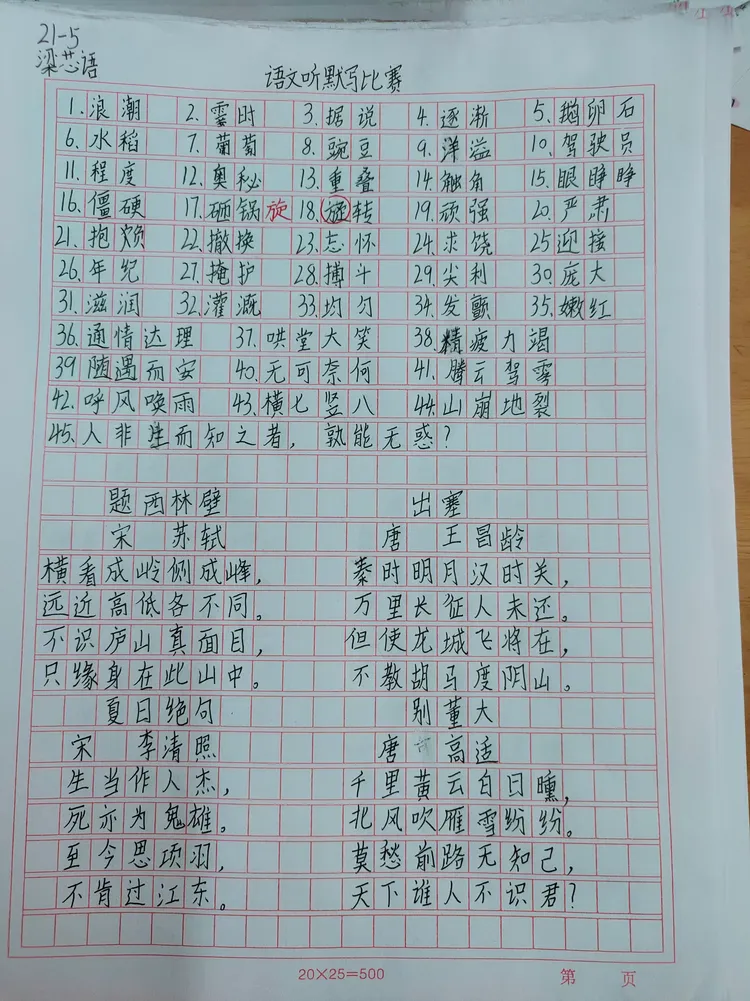 21-5
梁芯语
语文听默写比赛
1.浪潮 2.霎时 3.据说 4.逐渐 5.鹅卵石
6.水稻 7.葡萄 8.豌豆 9.洋溢 10.驾驶员
11.程度 12.奥秘 13.重叠 14.触角 15.眼睁睁
16.僵硬 17.砸锅 旋 18.旋转 19.顽强 20.严肃
21.抱负 22.撤换 23.忘怀 24.求饶 25迎接
26.年纪 27.掩护 28.搏斗 29.尖利 30.庞大
31.滋润 32.灌溉 33.均匀 34.发颤 35.嫩红
36.通情达理 37.哄堂大笑 38.精疲力竭
39随遇而安 40.无可奈何 41.腾云驾雾
42.呼风唤雨 43.横七竖八 44.山崩地裂
45.人非生而知之者，孰能无惑？
题西林壁 出塞
宋 苏轼 唐 王昌龄
横看成岭侧成峰， 秦时明月汉时关，
远近高低各不同。 万里长征人未还。
不识庐山真面目， 但使龙城飞将在，
只缘身在此山中。 不教胡马度阴山。
夏日绝句 别董大
宋 李清照 唐 高适
生当作人杰， 千里黄云白日曛，
死亦为鬼雄。 北风吹雁雪纷纷。
至今思项羽， 莫愁前路无知己，
不肯过江东。 天下谁人不识君？
20×25=500 第 页